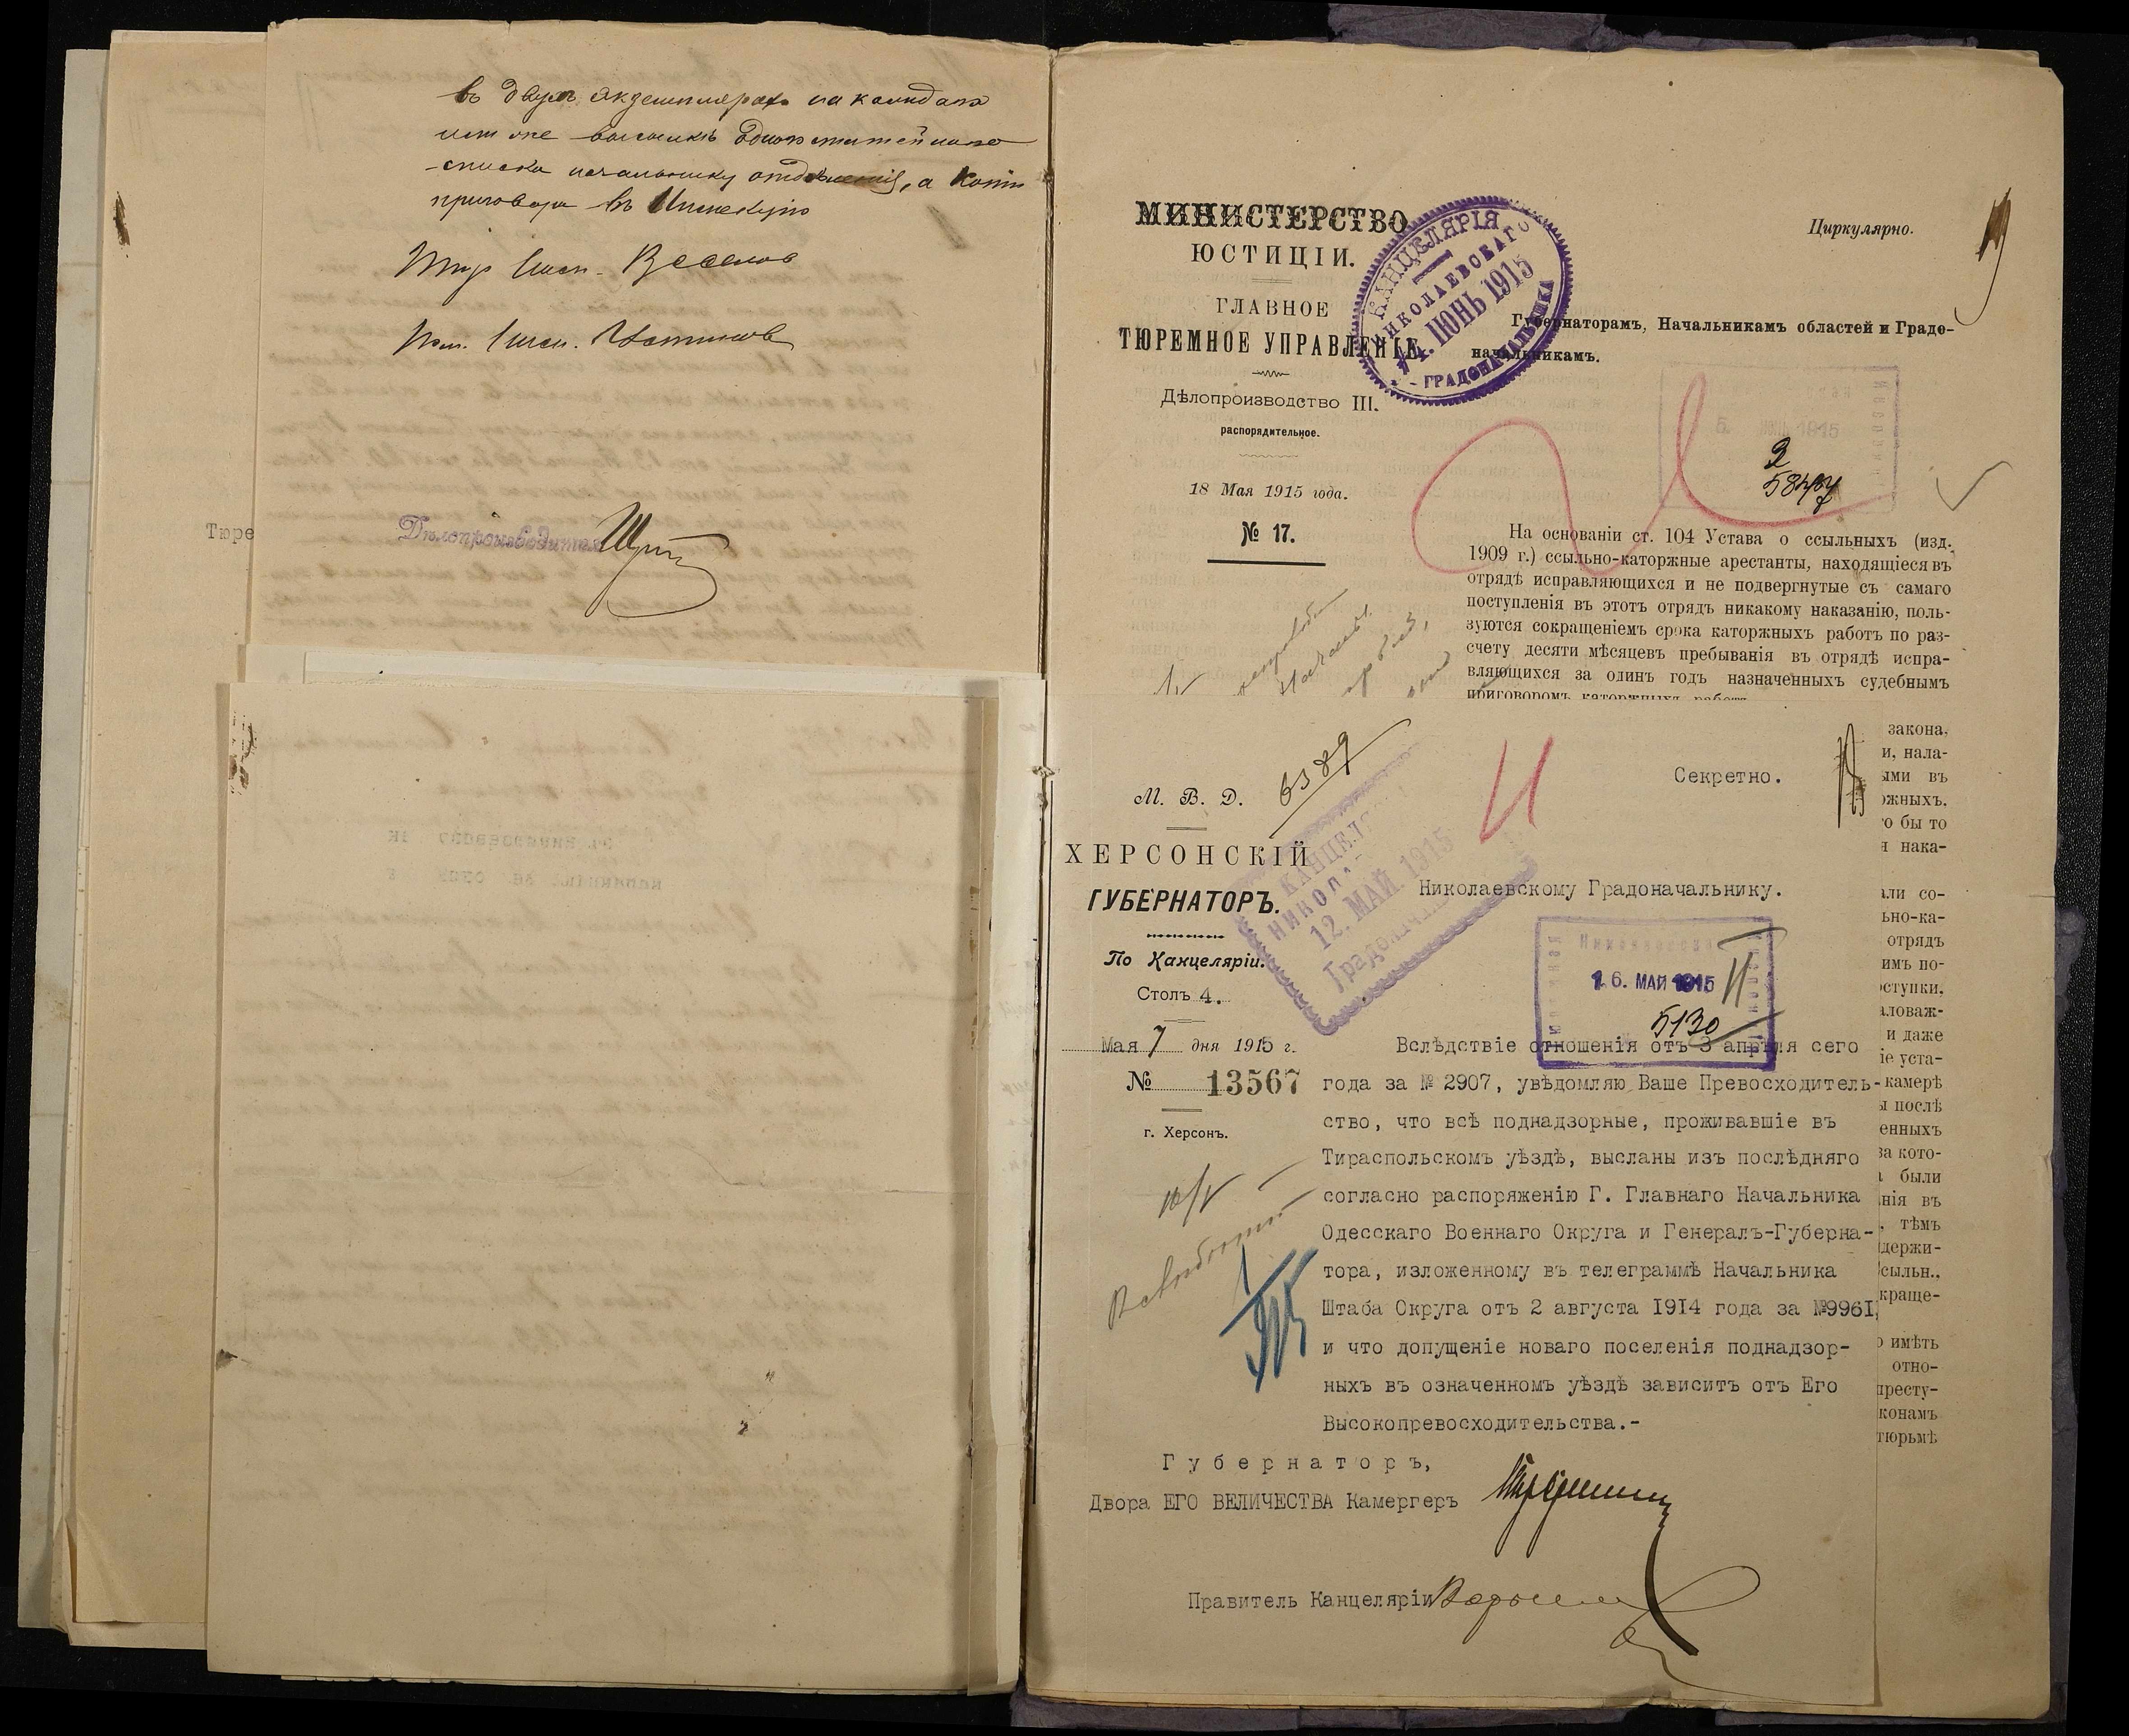 въ двухъ экземплярахъ на кандалъ
или же высылкѣ одного статейнаго
списка начальнику отдѣленія, а копіи
приговора въ Инспекцію
Тюр. Инсп.
Пом. Инсп.
Дѣлопроизводитель
Тюре
МИНИСТЕРСТВО
ЮСТИЦІИ.
ГЛАВНОЕ
ТЮРЕМНОЕ УПРАВЛЕНІЕ
Дѣлопроизводство III.
распорядительное.
18 Мая 1915 года.
№ 17.
КАНЦЕЛЯРІЯ
НИКОЛАЕВСКАГО
4. ІЮНЬ 1915
ГРАДОНАЧАЛЬНИКА
Циркулярно.
Губернаторамъ, Начальникамъ областей и Градо-
начальникамъ.
5. ІЮНЬ 1915
На основаніи ст. 104 Устава о ссыльныхъ (изд.
1909 г.) ссыльно-каторжные арестанты, находящіеся въ
отрядѣ исправляющихся и не подвергнутые съ самаго
поступленія въ этотъ отрядъ никакому наказанію, поль-
зуются сокращеніемъ срока каторжныхъ работъ по раз-
счету десяти мѣсяцевъ пребыванія въ отрядѣ испра-
вляющихся за одинъ годъ назначенныхъ судебнымъ
приговоромъ каторжныхъ работъ
закона,
и, нала-
ыми въ
ожныхъ,
о бы то
я нака-
али со-
ьно-ка-
отрядъ
имъ по-
оступки,
аловаж-
и даже
іе уста-
камерѣ
ы послѣ
енныхъ
за кото-
а были
нія въ
, тѣмъ
держи-
сыльн.,
краще-
о имѣть
отно-
престу-
конамъ
тюрьмѣ
М. В. Д.
6389
ХЕРСОНСКІЙ
ГУБЕРНАТОРЪ.
По Канцеляріи.
Столъ 4.
Мая 7 дня 1915 г.
№ 13567
г. Херсонъ.
12. МАЙ 1915
Секретно.
Николаевскому Градоначальнику.
16. МАЙ 1915
5130
Вслѣдствіе отношенія отъ 3 апрѣля сего
года за № 2907, увѣдомляю Ваше Превосходитель-
ство, что всѣ поднадзорные, проживавшіе въ
Тираспольскомъ уѣздѣ, высланы изъ послѣдняго
согласно распоряженію Г. Главнаго Начальника
Одесскаго Военнаго Округа и Генералъ-Губерна-
тора, изложенному въ телеграммѣ Начальника
Штаба Округа отъ 2 августа 1914 года за №9961,
и что допущеніе новаго поселенія поднадзор-
ныхъ въ означенномъ уѣздѣ зависитъ отъ Его
Высокопревосходительства.-
Губернаторъ,
Двора ЕГО ВЕЛИЧЕСТВА Камергеръ
Правитель Канцеляріи